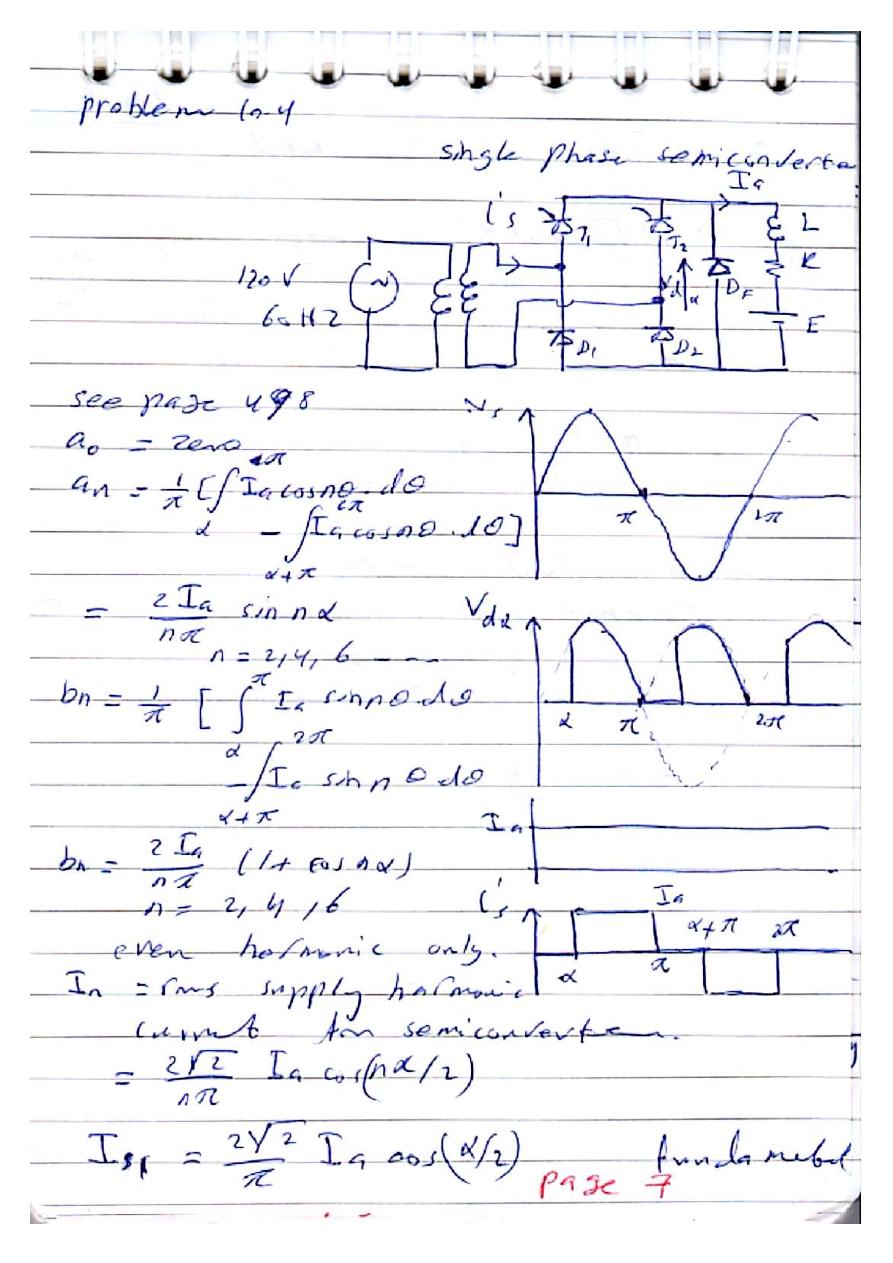 problem 10.4
single phase semiconverte
Ia
is
T1
T2
L
120 V
60 HZ
Vdα
DF
R
E
D1
D2
see page 498
a0 = zero
an = 1/π [∫απ Ia cos nθ. dθ
- ∫α+π2π Ia cos nθ. dθ]
= 2 Ia/nπ sin nα
n = 2, 4, 6 ----
Vs
π
2π
bn = 1/π [∫απ Ia sin nθ. dθ
- ∫α+π2π Ia sin n θ dθ
Vdα
α
π
2π
bn = 2 Ia/nπ (1+ cos nα)
n = 2, 4, 6
Ia
is
Ia
α
π
α+π
2π
even harmonic only.
In = rms supply harmonic
current for semiconverter.
= 2√2/nπ Ia cos(nα/2)
Is1 = 2√2/π Ia cos(α/2) fundamebal
page 7